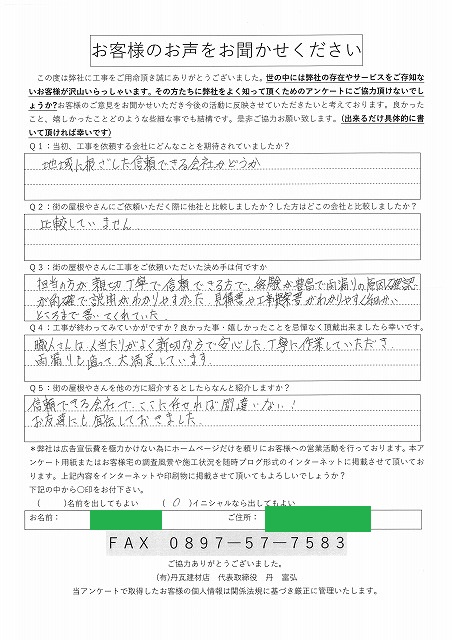 お客様のお声をお聞かせください
この度は弊社に工事をご用命頂き誠にありがとうございました。世の中には弊社の存在やサービスをご存知な
いお客様が沢山いらっしゃいます。その方たちに弊社をよく知って頂くためのアンケートにご協力頂けないでし
ょうか?お客様のご意見をお聞かせいただき今後の活動に反映させていただきたいと考えております。良かった
こと、嬉しかったことどのような些細な事でも結構です。是非ご協力お願い致します。(出来るだけ具体的に書
いて頂ければ幸いです)
Q1：当初、工事を依頼する会社にどんなことを期待されていましたか？
地域に根ざした信頼できる会社かどうか
Q2：街の屋根やさんにご依頼いただく際に他社と比較しましたか？した方はどこの会社と比較しましたか？
比較していません
Q3：街の屋根やさんに工事をご依頼いただいた決め手は何ですか
担当の方が親切丁寧で信頼できる方で、経験が豊富で雨漏りの原因の確認
が的確で説明がわかりやすかった。見積書や工事提案書がわかりやすく細かい
ところまで書いてくれていた
Q4：工事が終わってみていかがですか？良かった事・嬉しかったことを忌憚なく頂戴出来ましたら幸いです。
職人さんは人当たりがよく親切な方で安心した。丁寧に作業していただき、
雨漏りも直って大満足しています。
Q5：街の屋根やさんを他の方に紹介するとしたらなんと紹介しますか？
信頼できる会社で、ここに任せれば間違いない！
お友達にも宣伝しておきました。
＊弊社は広告宣伝費を極力かけない為にホームページだけを頼りにお客様への営業活動を行っております。本ア
ンケート用紙またはお客様宅の調査風景や施工状況を随時ブログ形式のインターネットに掲載させて頂いてお
ります。上記内容をインターネットや印刷物に掲載させて頂いてもよろしいでしょうか？
下記の中から〇印をお付下さい。
(　　)名前を出してもよい　　(　O　)イニシャルなら出してもよい
お名前：　　ご住所：
FAX　0897－57－7583
ご協力ありがとうございました。
(有)丹瓦建材店　代表取締役　丹　富弘
当アンケートで取得したお客様の個人情報は関係法規に基づき厳正に管理いたします。